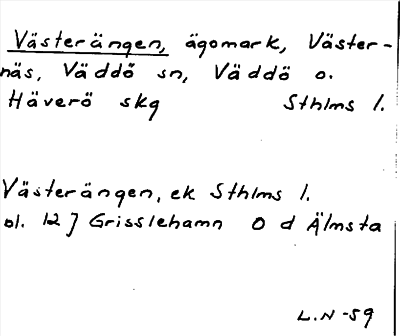 Västerängen, ägomark, Väster-
näs, Väddö sn, Väddö o.
Häverö skg Sthlms l.
Västerängen, ek Sthlms l.
bl. 127 Grisslehamn O d Älmsta
L.N -59